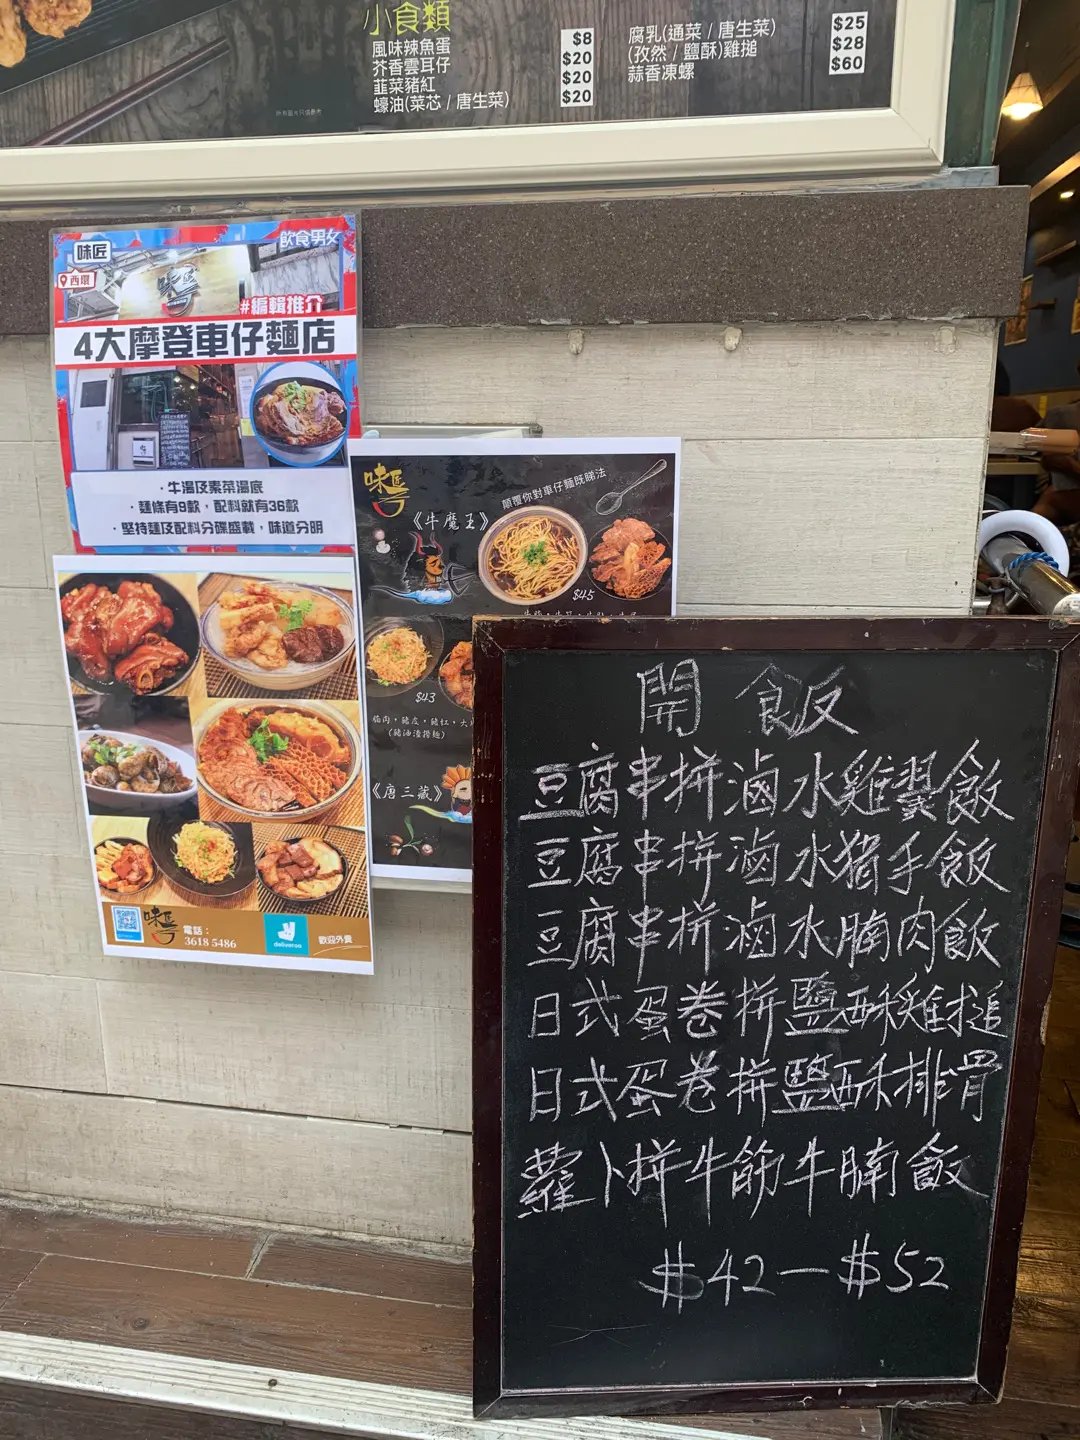 小食類
風味辣魚蛋 $8
芥香雲耳仔 $20
韮菜豬紅 $20
蠔油(菜芯 / 唐生菜) $20
腐乳(通菜 / 唐生菜) $25
(孜然 / 鹽酥)雞搥 $28
蒜香凍螺 $60
味匠
飲食男女
西環
味匠
#編輯推介
4大摩登車仔麵店
·牛湯及素菜湯底
·麵條有9款，配料就有36款
·堅持麵及配料分碟盛載，味道分明
味匠
電話：
3618 5486
deliveroo
歡迎外賣
味匠
顛覆你對車仔麵既睇法
《牛魔王》
$45
$43
(豬油渣撈麵)
《唐三藏》
開飯
豆腐串拼滷水雞翼飯
豆腐串拼滷水豬手飯
豆腐串拼滷水腩肉飯
日式蛋卷拼鹽酥雞搥
日式蛋卷拼鹽酥排骨
蘿卜拼牛筋牛腩飯
$42—$52